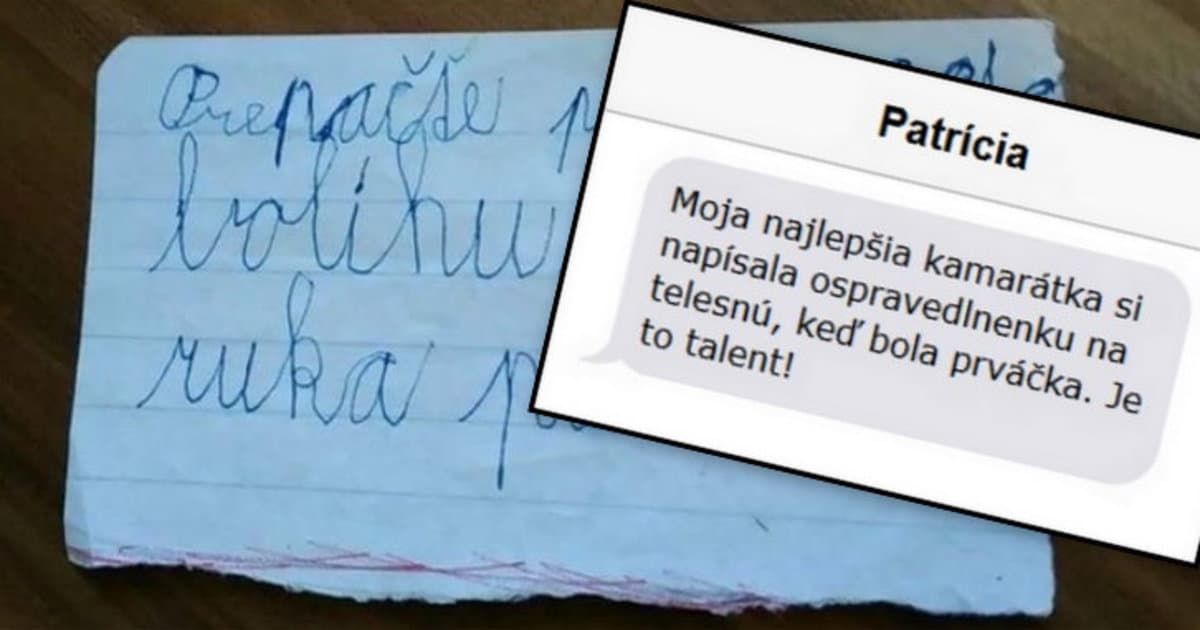 Prepačťe
bolíhu
ruka
Patrícia
Moja najlepšia kamarátka si
napísala ospravedlnenku na
telesnú, keď bola prváčka. Je
to talent!